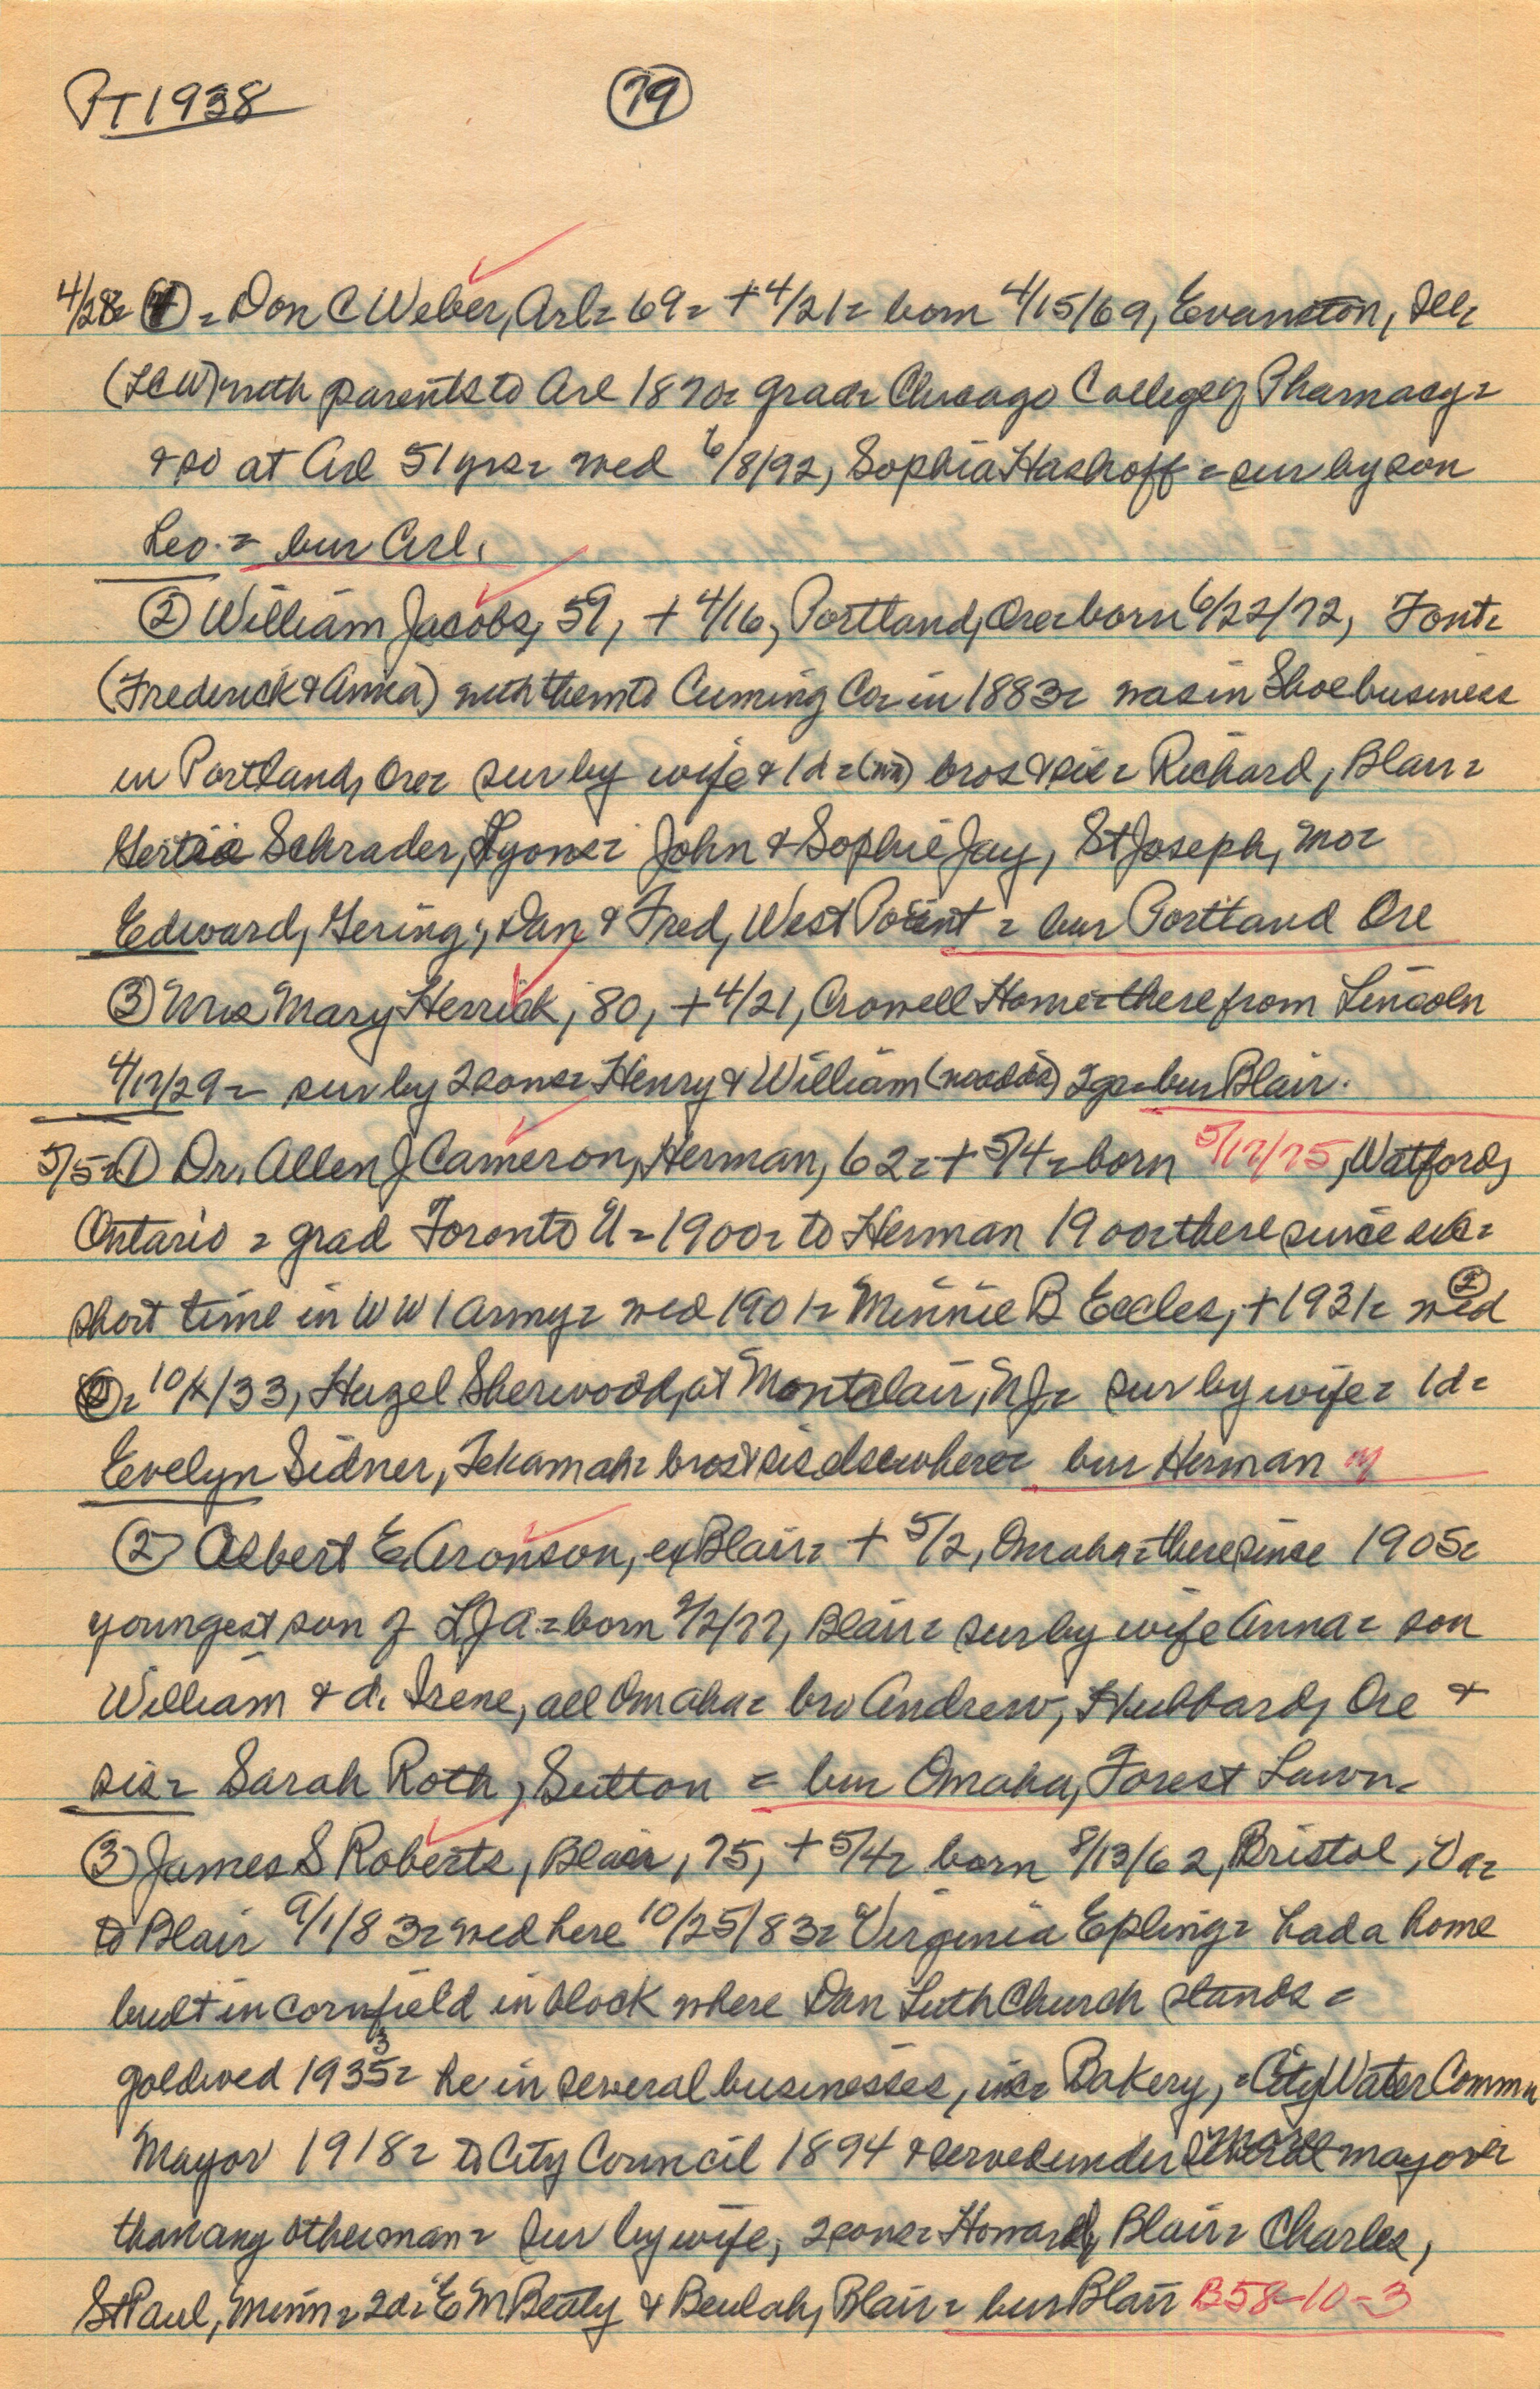 PT 1938 (79)
4/28= (1) = Don C Weber, Arl= 69= +4/21= born 4/15/69, Evanston, Ill=
(LCW) with parents to Arl 1870= grad= Chicago College of Pharmacy=
& so at Arl 51 yrs= wed 6/8/92, Sophia Hashoff = sur by son
Leo. = bur Arl.
(2) William Jacobs, 59, + 4/16, Portland, Ore= born 6/22/72, Font=
(Frederick & Anna) with them to Cuming Co= in 1883= was in Shoe business
in Portland, Ore= sur by wife & 1 d= (nn) bros & sis= Richard, Blair=
Gertie Schrader, Lyons= John & Sophie Jay, St Joseph, Mo=
Edward, Gering; Dan & Fred, West Point = bur Portland Ore
(3) Mrs Mary Herrick, 80, +4/21, Crowell Home= there from Lincoln
4/17/29= sur by 2 sons= Henry & William (no adds) 2 g= bur Blair.
5/5= (1) Dr. Allen J Cameron, Herman, 62= + 5/4= born 5/17/75, Watford,
Ontario = grad Toronto U = 1900= to Herman 1900= there since exc=
short time in WW1 army= wed 1901= Minnie B Eccles, +1931= wed (2)
10/ /33, Hazel Sherwood, at Montclair, NJ= sur by wife= 1d=
Evelyn Sidner, Tekamah= bros & sis elsewhere= bur Herman m
(2) Albert E Aronson, ex Blair= + 5/2, Omaha= there since 1905=
youngest son of LJA= born 9/2/77, Blair= sur by wife Anna= son
William & d. Irene, all Omaha= bro Andrew, Hubbard, Ore &
sis= Sarah Roth, Sutton = bur Omaha, Forest Lawn=
(3) James S Roberts, Blair, 75, + 5/4= born 8/13/62, Bristol, Va=
to Blair 9/1/83= wed here 10/25/83= Virginia Epling= had a home
built in cornfield in block where Dan Luth Church stands =
goldwed 1933= he in several businesses, inc= Bakery, = City Water Comm=
Mayor 1918= to City Council 1894 & served under more mayors
than any other man= sur by wife, 2 sons= Howard, Blair= Charles,
St Paul, Minn= 2d= E M Beaty & Beulah, Blair= bur Blair B58-10-3